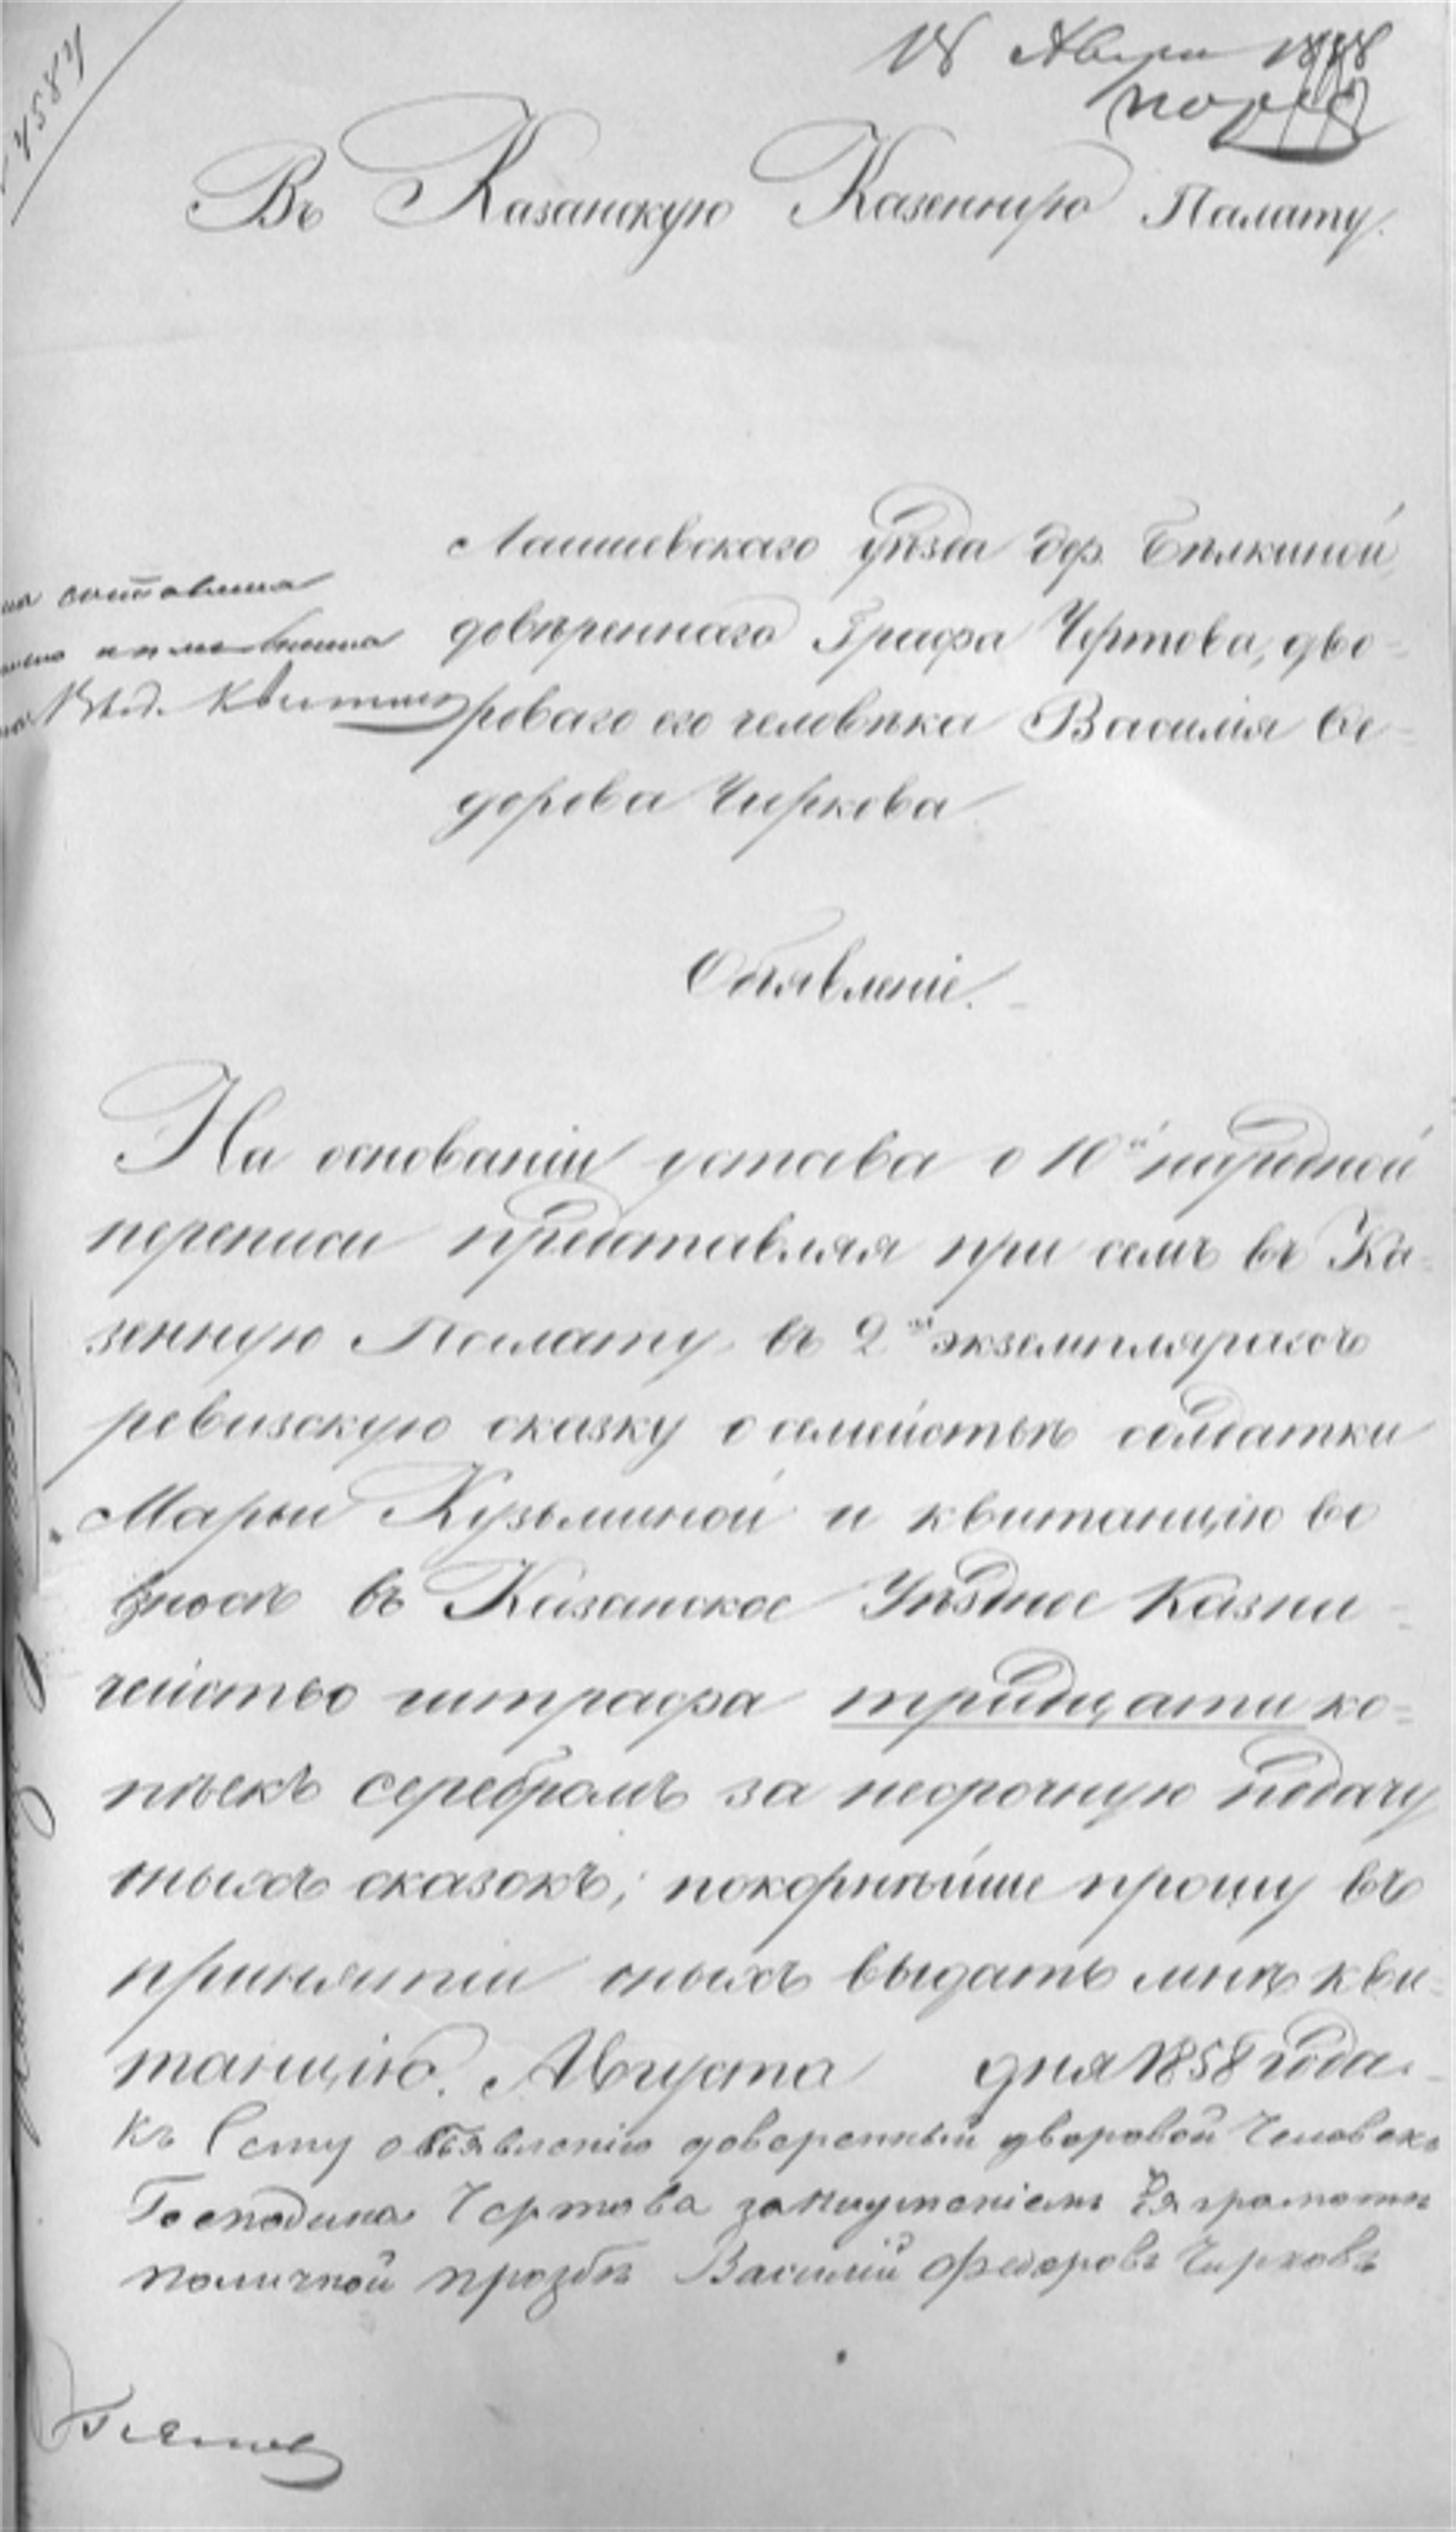 4584
18 Августа 1858
Въ Казанскую Казенную Палату.
Лаишевскаго уѣзда дер. Бѣлкиной,
довѣреннаго Графа Чертова, дво-
роваго его человѣка Василія Ѳе-
дорова Чиркова
Объявленіе.
На основаніи устава о 10й народной
переписи представляя при семъ въ Ка-
зенную Палату въ 2хъ экземплярахъ
ревизскую сказку о семействѣ солдатки
Марьи Кузьминой и квитанцію во
взносѣ въ Казанское Уѣздное Казна-
чейство штрафа тридцати ко-
пѣекъ серебромъ за несрочную подачу
оныхъ сказокъ; покорнѣйше прошу въ
принятіи оныхъ выдать мнѣ кви-
танцію. Августа дня 1858 года.
Къ Сему объявленію доверенный дворовой Человекъ
Господина Чертова за неуменіемъ грамоты
поличной прозбѣ Василій Федоровъ Чирковъ